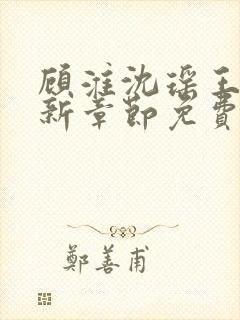 顾淮沈瑶王
新章節免費
鄭善甫